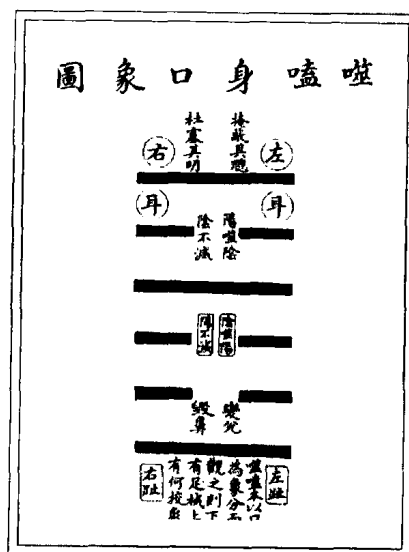 噬嗑身口象圖
左
掩蔽其聰
杜塞其明
右
耳
耳
陽噬陰
陰不滅
陰噬陽
陽不滅
變化
鼻
左趾
噬嗑本以口
為象分而
觀之則下
有足械上
有何校焉
右趾